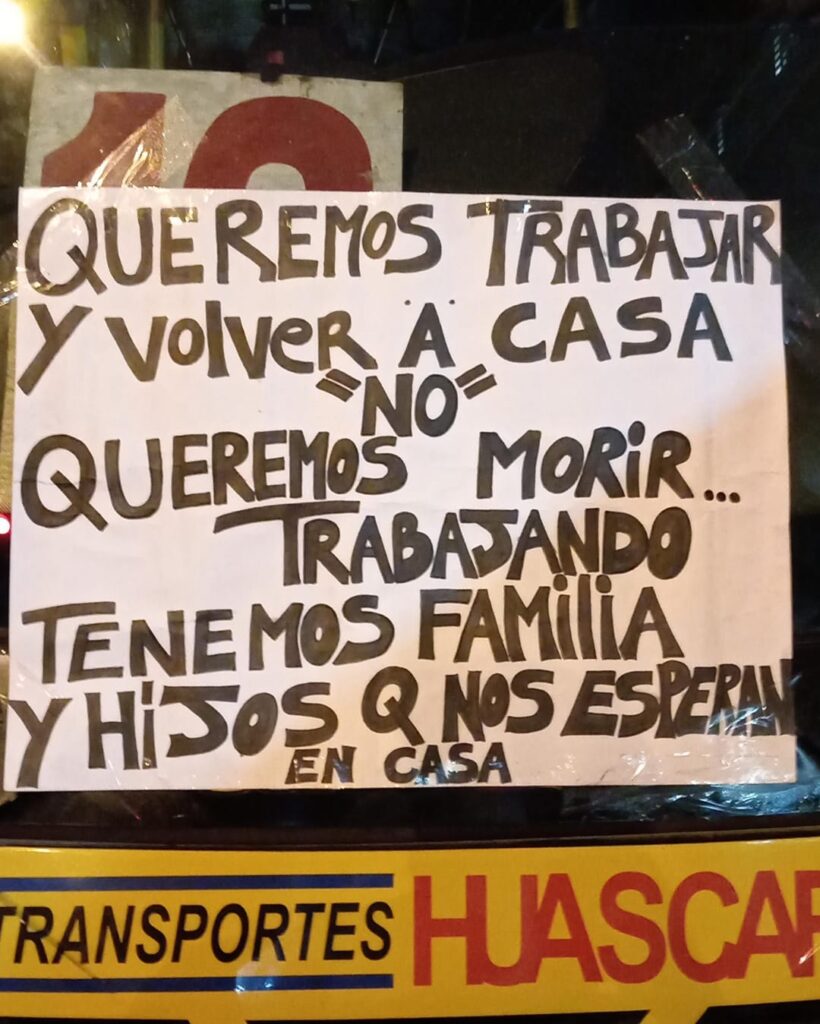 QUEREMOS TRABAJAR
Y VOLVER A CASA
"NO"
QUEREMOS MORIR...
TRABAJANDO
TENEMOS FAMILIA
Y HIJOS Q NOS ESPERAN
EN CASA
TRANSPORTES HUASCAR